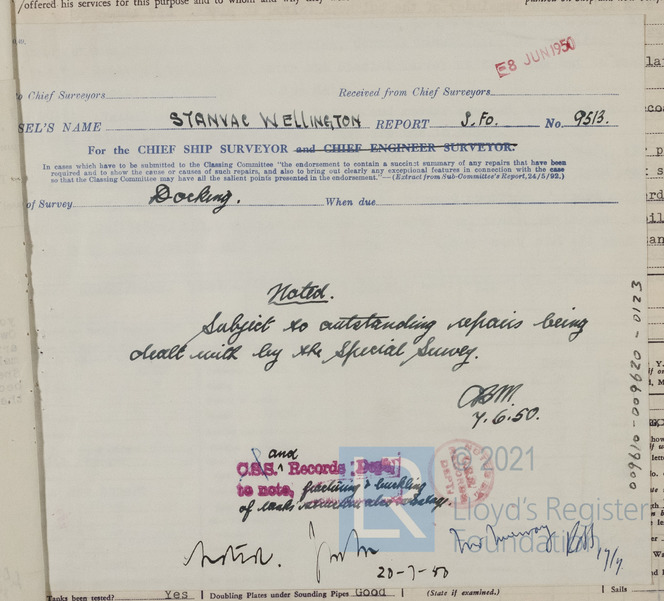 /offered his services for this purpose and to whom and why they were
E8 JUN 1950
to Chief Surveyors
Received from Chief Surveyors
SEL'S NAME STANVAC WELLINGTON REPORT S.Fo. No. 9513.
For the CHIEF SHIP SURVEYOR and CHIEF ENGINEER SURVEYOR.
In cases which have to be submitted to the Classing Committee "the endorsement to contain a succinct summary of any repairs that have been
required and to show the cause or causes of such repairs, and also to bring out clearly any exceptional features in connection with the case
so that the Classing Committee may have all the salient points presented in the endorsement."—(Extract from Sub-Committee's Report, 24/5/92.)
of Survey Docking. When due
Noted.
Subject to outstanding repairs being
dealt with by the Special Survey.
7.6.50.
and
C.S.S. Records Dept.
to note, fracturing & buckling
of tanks
© 2021
Lloyd's Register
Foundation
LR
noted.
20-7-50
17/7
009610-009620-0123
Tanks been tested? Yes Doubling Plates under Sounding Pipes Good (State if examined.) Sails